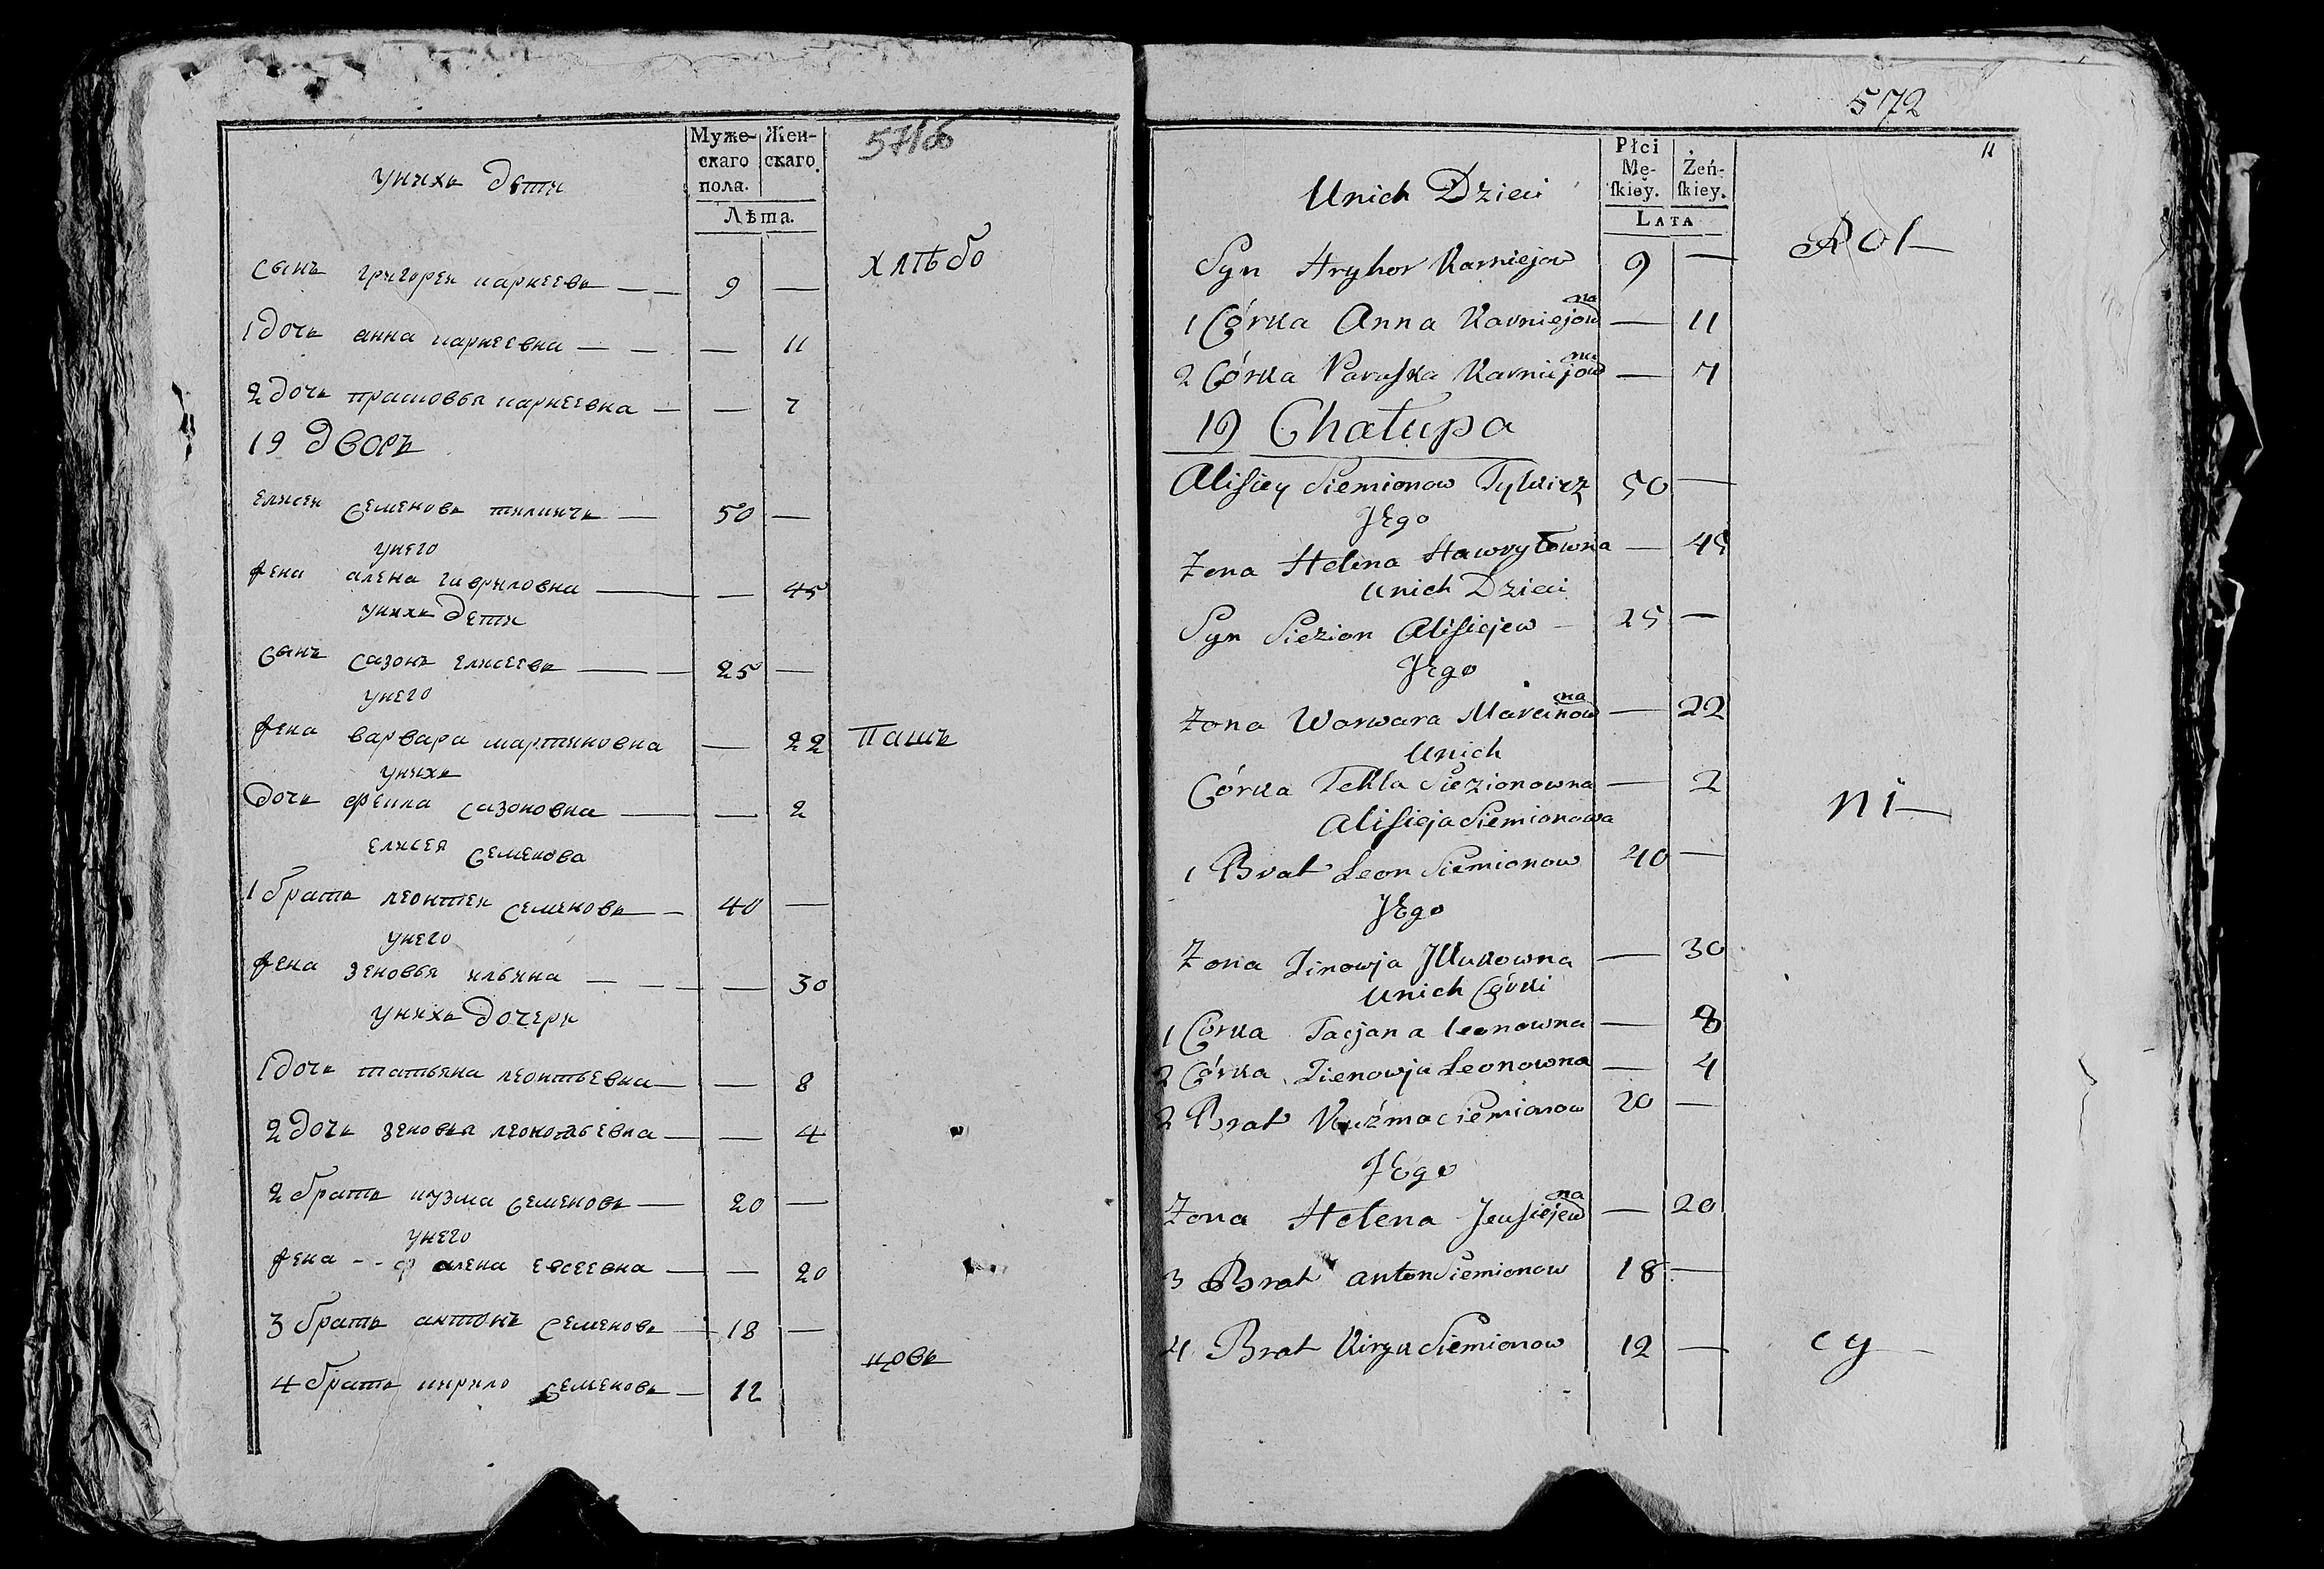 Муже-
скаго
пола.
Жен-
скаго
571об
унихъ дѣти
Лѣта.
хлѣбо
сынъ григореи карнеевъ — — 9 —
1 дочь анна карнеевна — — — 11
2 дочь прасковья карнеевна — — 7
19 дворъ
елисеи семеновъ — 50 —
унего
жена алена гавриловна — — 45
унихъ дети
сынъ сазонъ елисеевъ — — 25 —
унего
жена варвара мартиновна — 22
пашъ
унихъ
дочь фекла сазоновна — — 2
елисея семенова
1 братъ леонтеи семеновъ — 40 —
унего
жена зеновья ильина — — — — 30
унихъ дочери
1 дочь татьяна леонтьевна — — 8
2 дочь зеновья леонтьевна — — 4
2 братъ кузма семеновъ — 20 —
унего
жена - - алена евсеевна — — 20
3 братъ антонъ семеновъ — 18 —
4 братъ кирило семеновъ — 12
цовъ
572
11
Płci
Mę-
ſkiey.
Żeń-
ſkiey.
Unich Dzieci
Lata
Rol—
Syn Hryhor Karniejow 9 —
1 Córka Anna Karniejowna — 11
2 Córka Paruſka Karniejowna — 7
19 Chałupa
Aliſiey Siemionow 50 —
Jego
Żona Helena Hawryłowna — 45
Unich Dzieci
Syn Siezion Aliſiejew — 25 —
Jego
Żona Warwara Marcinowna — 22
Unich
Córka Tekla Siezionowna — 2
Aliſieja Siemionowa
ni—
1 Brat Leon Siemionow 40 —
Jego
Żona Zinowja — 30
Unich Córki
1 Córka Tacjana Leonowna — 8
2 Córka Zienowja Leonowna — 4
2 Brat Kuźma Siemionow 20 —
Jego
Żona Helena Jeuſiejewna — 20
3 Brat Anton Siemionow 18 —
4 Brat Siemionow 12 —
cy —